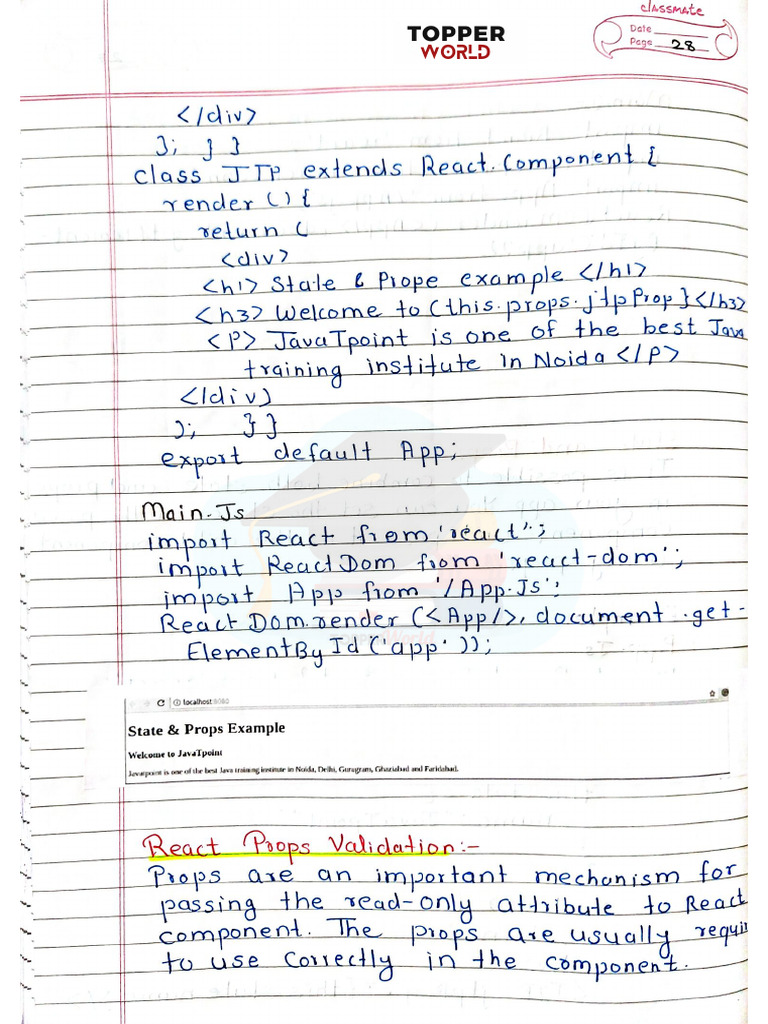 classmate
TOPPER
WORLD
Date
Page 28
</div>
); } }
class JTP extends React.Component {
render () {
return (
<div>
<h1> State & Prope example </h1>
<h3> Welcome to {this.props.jtpProp}</h3>
<P> JavaTpoint is one of the best Java
training institute in Noida </P>
</div>
); } }
export default App;
Main.Js
import React from 'react";
import ReactDom from 'react-dom';
import App from '/App.Js';
React Dom.render (<App/>, document .get-
ElementById ('app'));
localhost:8080
State & Props Example
Welcome to JavaTpoint
Javatpoint is one of the best Java training institute in Noida, Delhi, Gurugram, Ghaziabad and Faridabad.
React Props Validation:-
Props are an important mechanism for
passing the read-only attribute to React
component. The props are usually requi
to use correctly in the component.